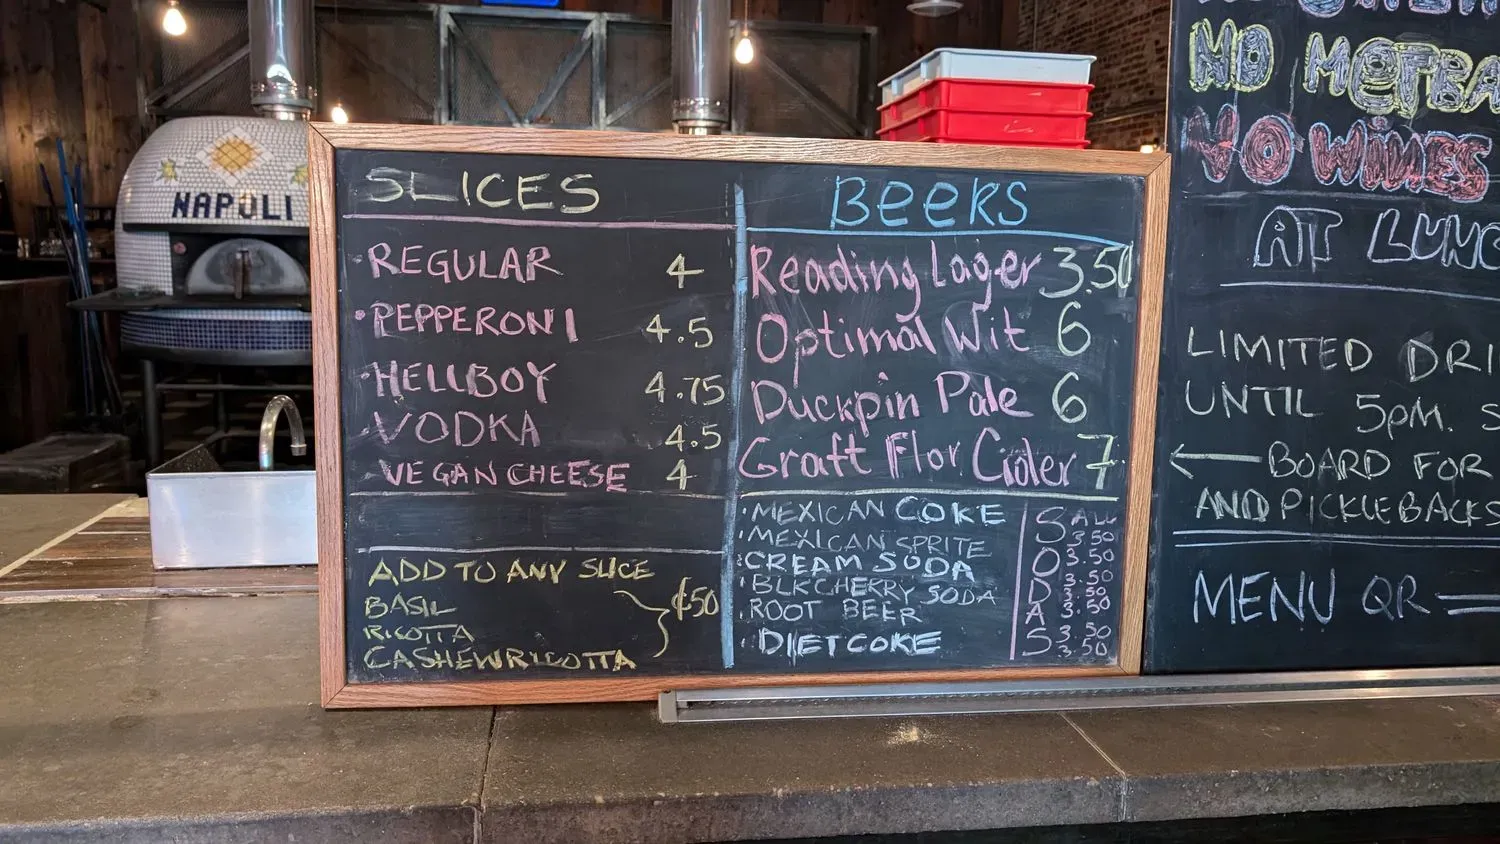 NAPOLI
SLICES
REGULAR 4
PEPPERONI 4.5
HELLBOY 4.75
VODKA 4.5
VEGAN CHEESE 4
ADD TO ANY SLICE
BASIL
RICOTTA
CASHEW RICOTTA
¢50
BEERS
Reading Lager 3.50
Optimal Wit 6
Duckpin Pale 6
Graft Flor Cider 7
MEXICAN COKE
MEXICAN SPRITE
CREAM SODA
BLK CHERRY SODA
ROOT BEER
DIET COKE
SODAS
ALL
3.50
3.50
3.50
3.50
3.50
3.50
NO
NO WINES
AT
LIMITED
UNTIL 5PM.
BOARD FOR
AND PICKLEBACKS
MENU QR